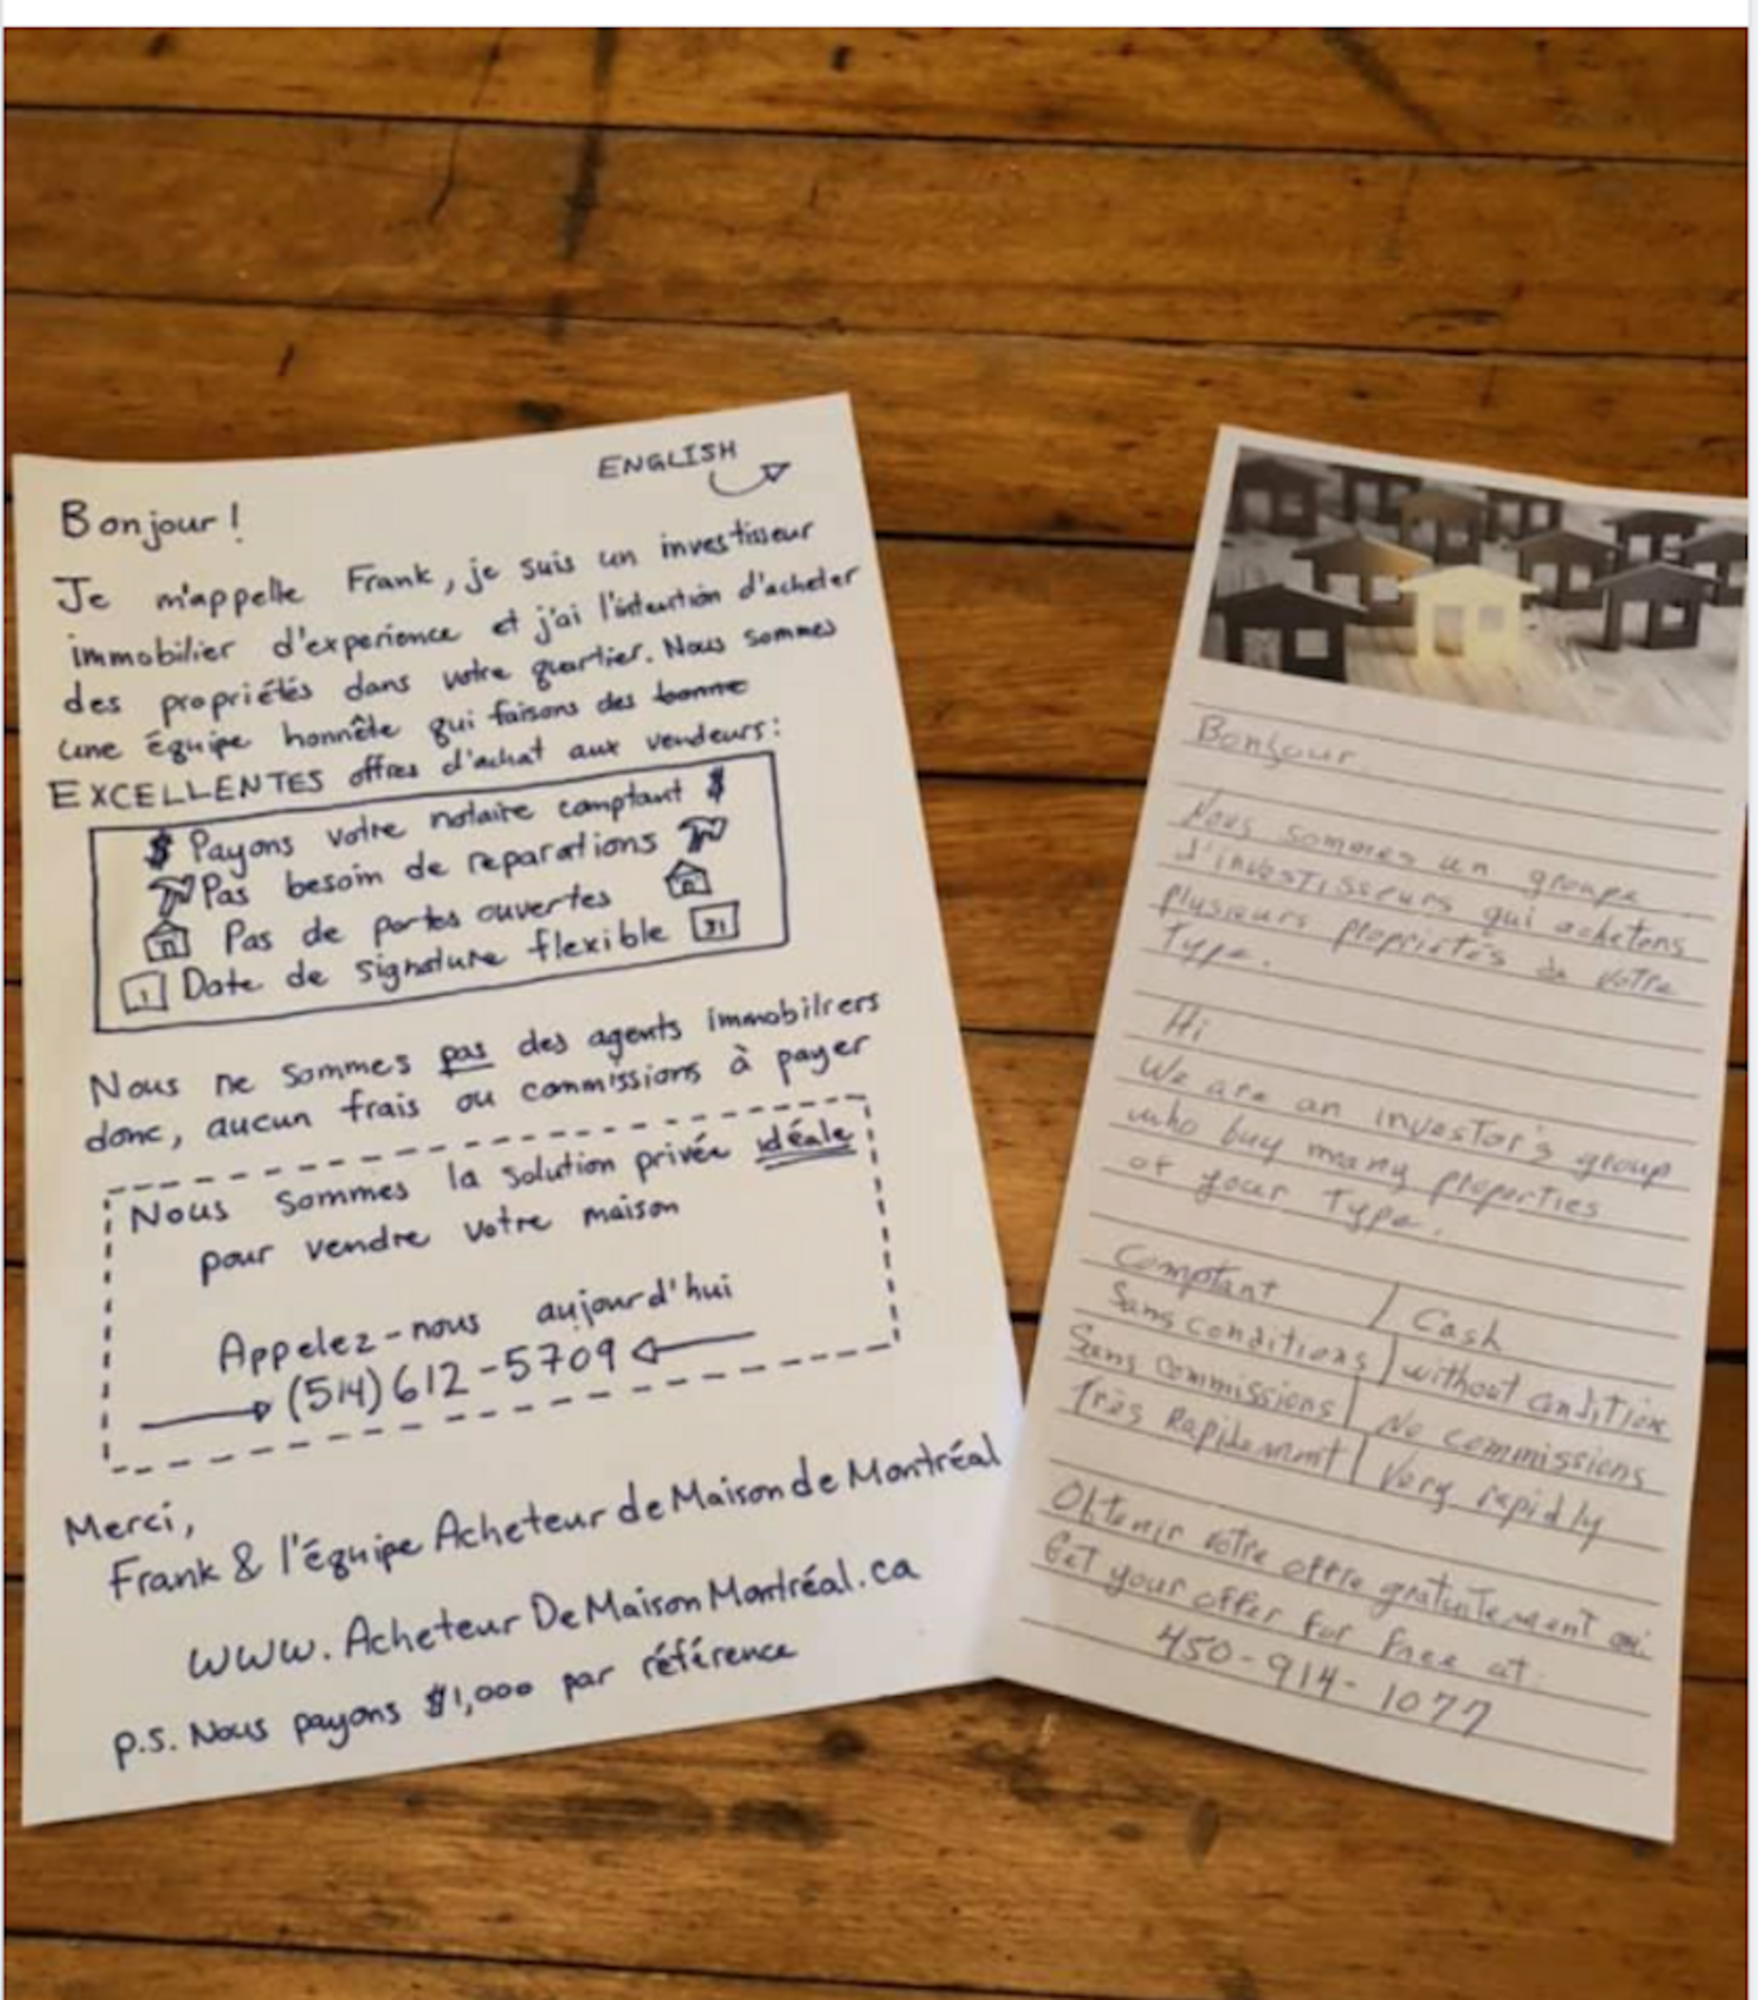 ENGLISH
Bonjour!
Je m'appelle Frank, je suis un investisseur
immobilier d'experience et j'ai l'intention d'acheter
des propriétés dans votre quartier. Nous sommes
une équipe honnête qui faisons des bonne
EXCELLENTES offres d'achat aux vendeurs:
$ Payons votre notaire comptant $
Pas besoin de reparations
Pas de portes ouvertes
1 Date de signature flexible 31
Nous ne sommes pas des agents immobiliers
donc, aucun frais ou commissions à payer
Nous sommes la solution privée idéale
pour vendre votre maison
Appelez-nous aujourd'hui
(514) 612-5709
Merci,
Frank & l'équipe Acheteur de Maison de Montréal
www.AcheteurDeMaisonMontréal.ca
p.s. Nous payons $1,000 par référence
Bonjour
Nous sommes un groupe
d'investisseurs qui achetons
plusieurs propriétés de votre
Type.
Hi
We are an investor's group
who buy many properties
of your Type.
Comptant / Cash
Sans conditions / without condition
Sans commissions / No commissions
Très Rapidement / Very rapidly
Obtenir votre offre gratuitement au:
Get your offer for free at:
450-914-1077